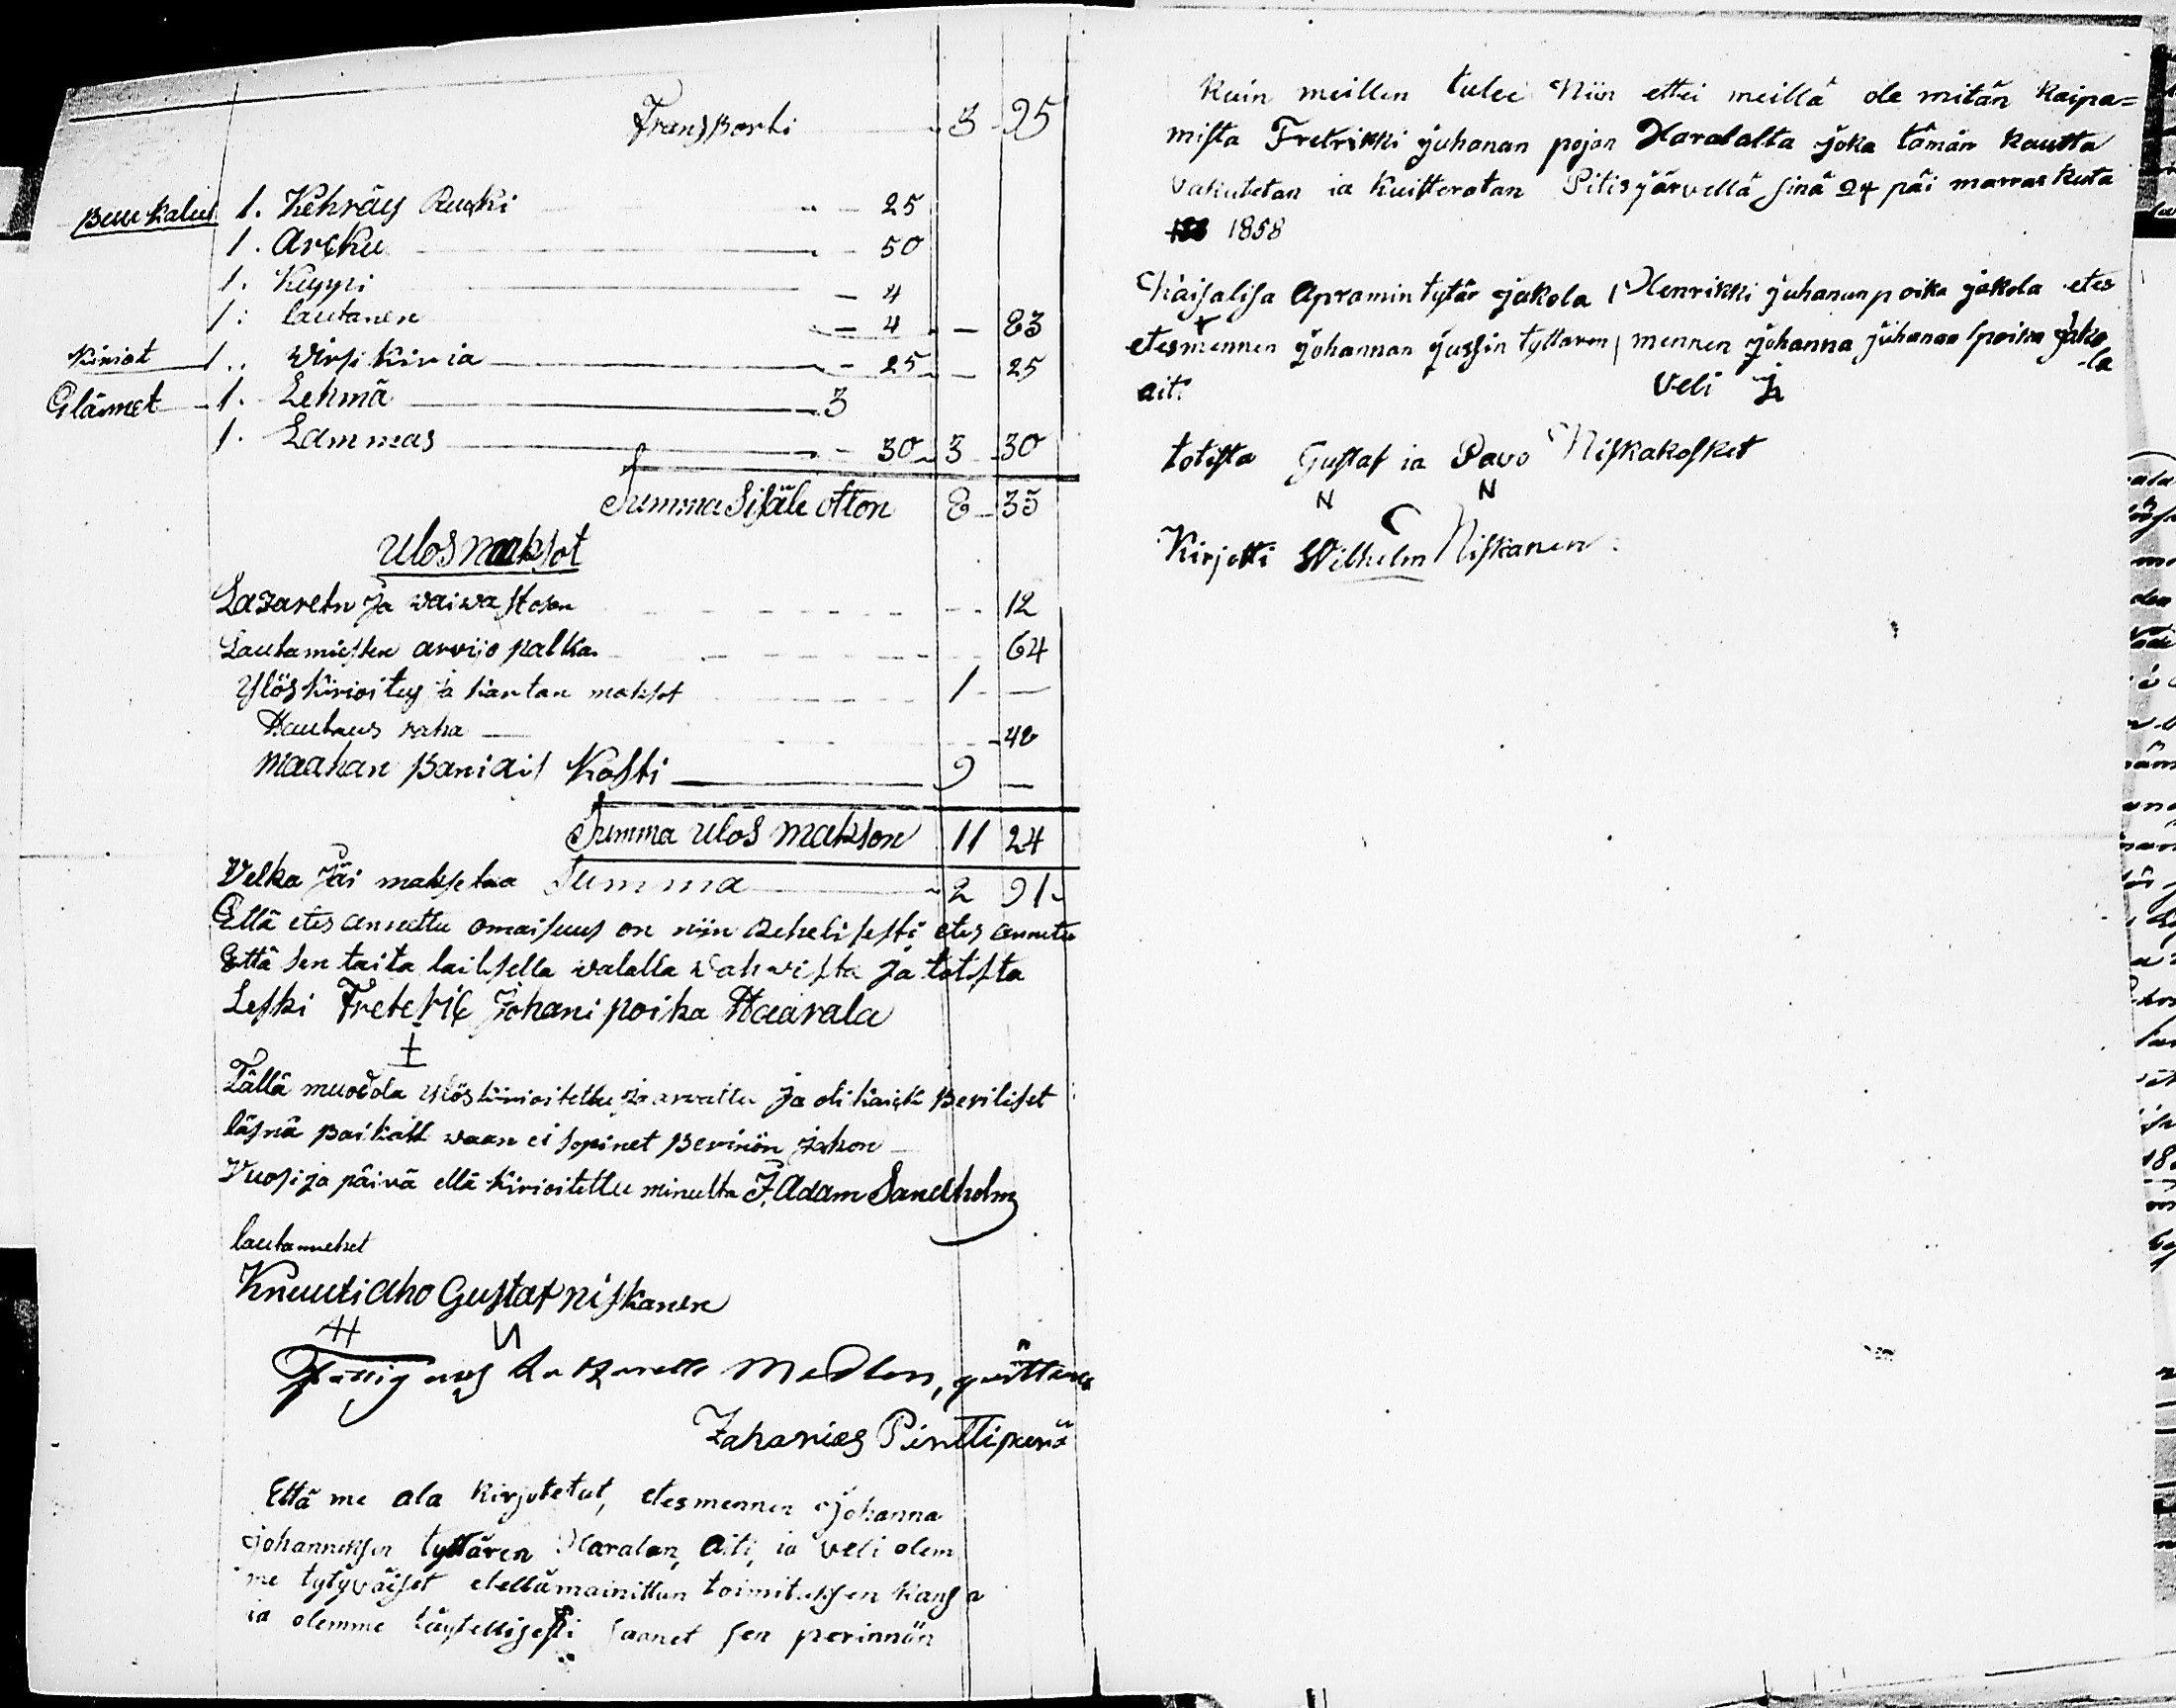 Transporti 3 95
Puu kalut 1. Kehräys Rucki 25
1. Arcku 50
1. Kuppi 4
1: lautanen 4 — 83
Kiriat 1.. Wirsi kiria 25 — 25
Eläimet 1. Lehmä 3
1. Lammas 30 3 30
Summa Sisäle otton 8 33
Ulos maksot
Lazaretn ja waiwastosen 12
Lautamiesten arvijo palka 64
Ylös kirioitus ja kartan maksot 1 —
Hautaus raha 48
maahan Paniais Kosti 9 —
Summa ulos makson 11 24
Velka jäi maksetaa Summa 2 91
Että etes annettu omaisuus on niin Rehelisesti etes annetu
Että sen taita lailisella walalla wahwista ja totista
Leski Freteric Johani poika Haarala
Tällä muodola ylös kirioitettu ja arvattu ja oli kaick Periliset
läsnä Paikall waan ei sopinet Perinön jakon
Vuosi ja päivä ellä kirioitettu minulta J. Adam Sandholm
lautamiehet
Knuuti aho Gustaf niskanen
H N
Fattig och Latzaretts Medlen, quitteras
Zaharias Pirttiperä
Että me ala kirjotetut, etesmennen Johanna
Johannuksen tyttären Haralan, äiti, ia veli olem
me tytyväiset edellämainittun toimituksen kansa
ia olemme täytellisesti saanet sen perinnön
kuin meillen tulee Niin ettei meillä ole mitän kaipa=
mista Fretrikki juhanan pojan Haralalta joka tämän kautta
vakutetan ia kuitteratan Pitisjärvellä sinä 24 päi marras kuta
1858
Kaisalisa Apramin tytär jakola | Henrikki juhanan poika jakola etes
etesmennen Johannan jussin tyttaren | mennen johanna juhanan poika jako
-la
äit: veli
totista Gustaf ia Pavo Niskakosket
N N
Kirjotti Wilhelm Niskanen.